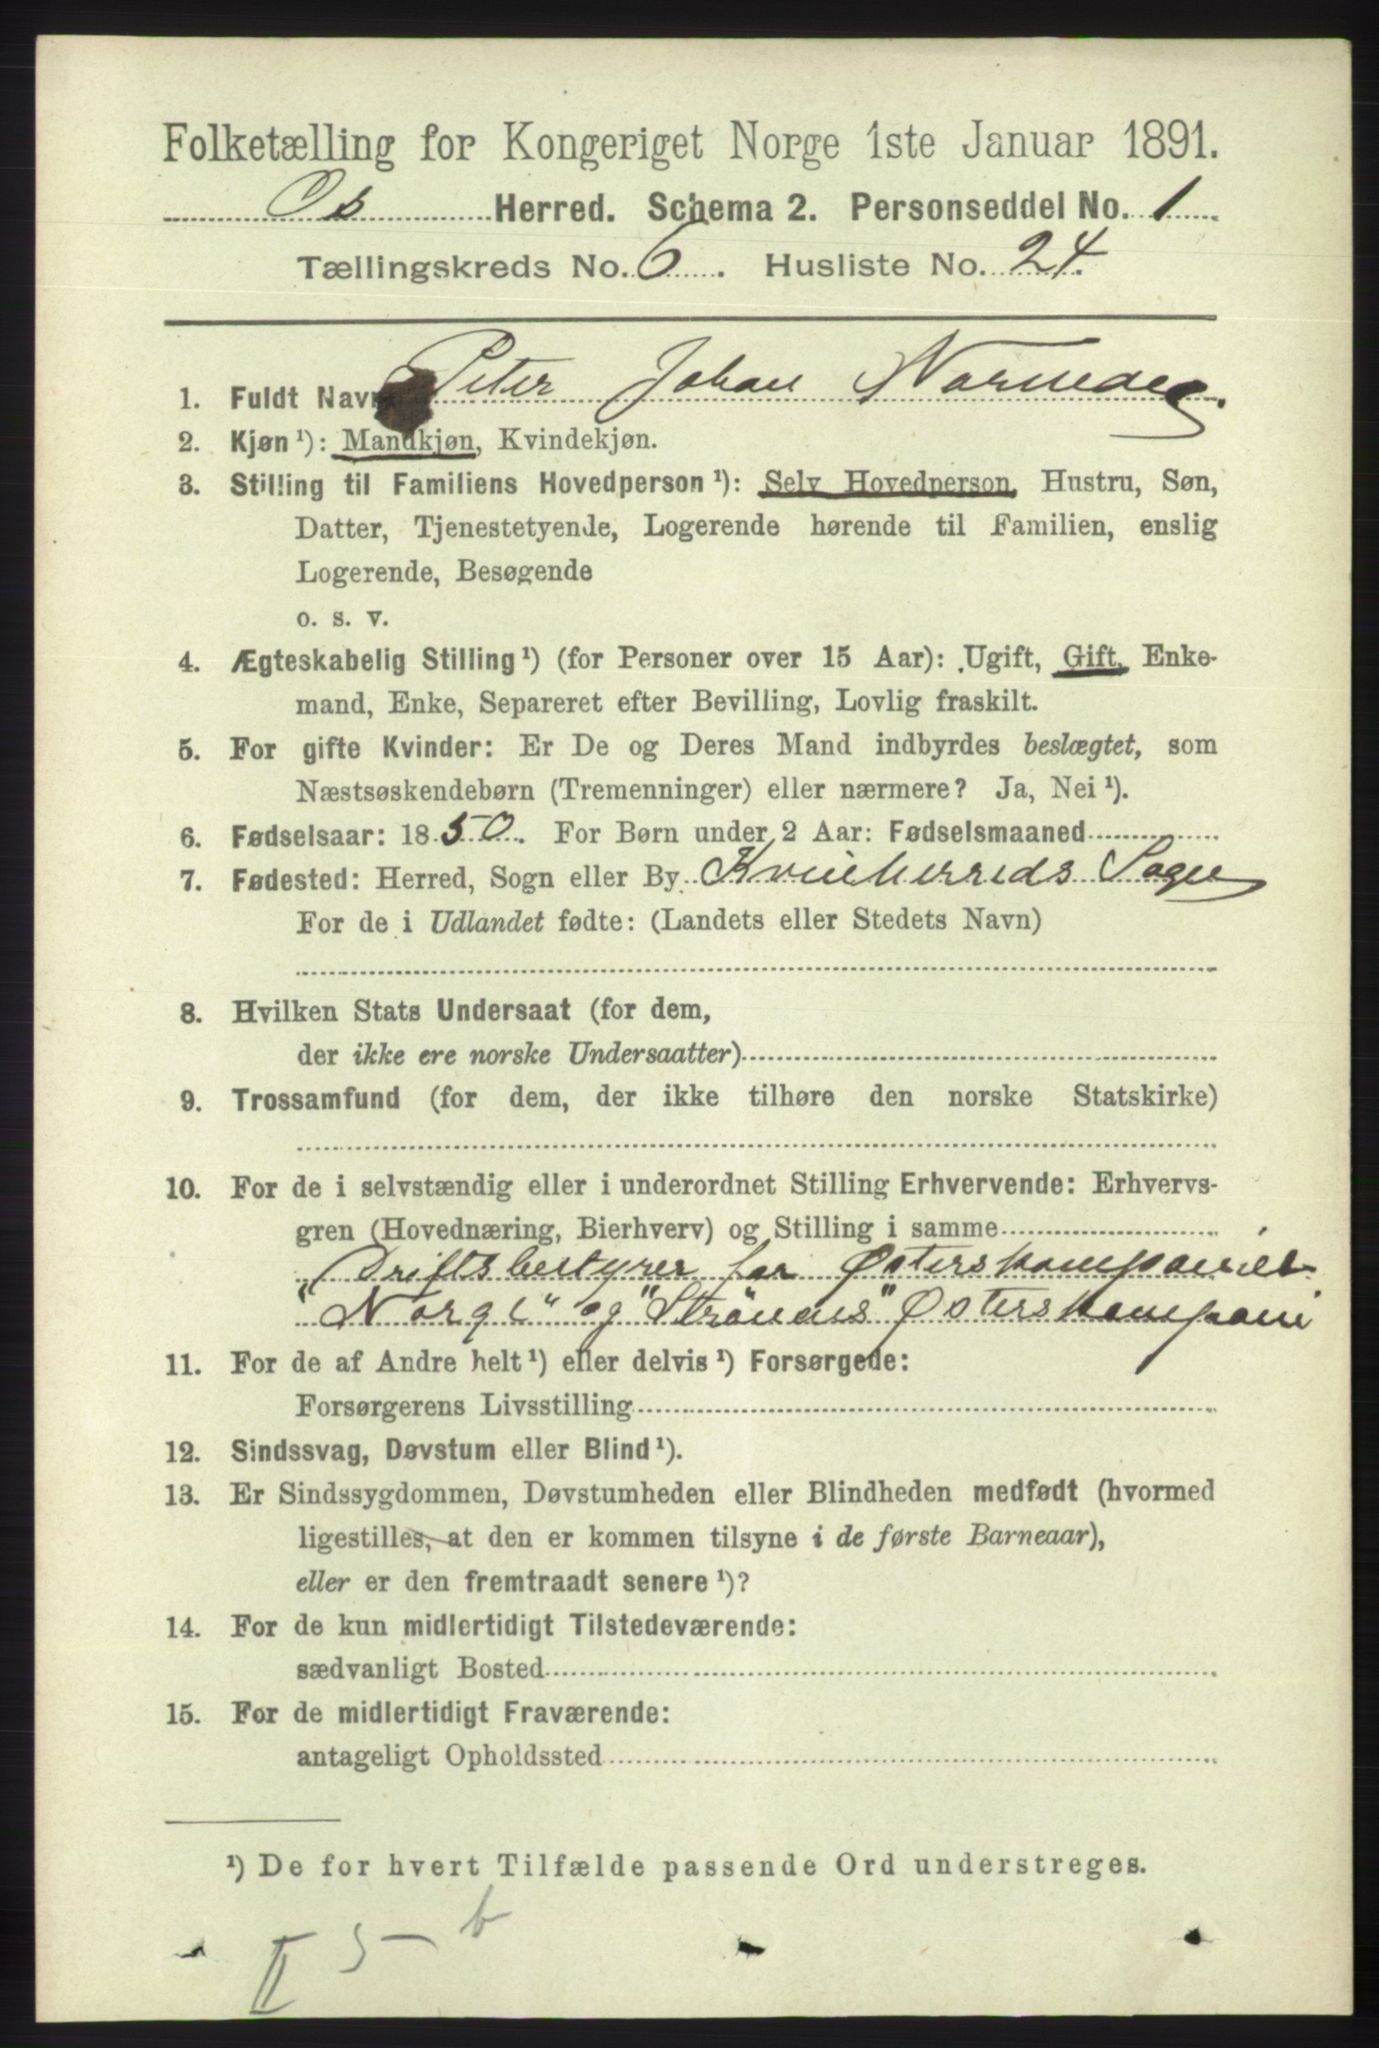 Folketælling for Kongeriget Norge 1ste Januar 1891.
Os Herred. Schema 2. Personseddel No. 1
Tællingskreds No. 6. Husliste No. 24.
1. Fuldt Navn Peter Johan
2. Kjøn¹): Mandkjøn, Kvindekjøn.
3. Stilling til Familiens Hovedperson¹): Selv Hovedperson, Hustru, Søn,
Datter, Tjenestetyende, Logerende hørende til Familien, enslig
Logerende, Besøgende
o. s. v.
4. Ægteskabelig Stilling¹) (for Personer over 15 Aar): Ugift, Gift, Enke-
mand, Enke, Separeret efter Bevilling, Lovlig fraskilt.
5. For gifte Kvinder: Er De og Deres Mand indbyrdes beslægtet, som
Næstsøskendebørn (Tremenninger) eller nærmere? Ja, Nei¹).
6. Fødselsaar: 1850. For Børn under 2 Aar: Fødselsmaaned
7. Fødested: Herred, Sogn eller By Kvinherreds Sogn
For de i Udlandet fødte: (Landets eller Stedets Navn)
8. Hvilken Stats Undersaat (for dem,
der ikke ere norske Undersaatter)
9. Trossamfund (for dem, der ikke tilhøre den norske Statskirke)
10. For de i selvstændig eller i underordnet Stilling Erhvervende: Erhvervs-
gren (Hovednæring, Bierhverv) og Stilling i samme
Driftsbestyrer for Østerskompaniet
"Norge" og "Strönens" Østerskompani
11. For de af Andre helt¹) eller delvis¹) Forsørgede:
Forsørgerens Livsstilling
12. Sindssvag, Døvstum eller Blind¹).
13. Er Sindssygdommen, Døvstumheden eller Blindheden medfødt (hvormed
ligestilles, at den er kommen tilsyne i de første Barneaar),
eller er den fremtraadt senere¹)?
14. For de kun midlertidigt Tilstedeværende:
sædvanligt Bosted
15. For de midlertidigt Fraværende:
antageligt Opholdssted
¹) De for hvert Tilfælde passende Ord understreges.
II 5-b